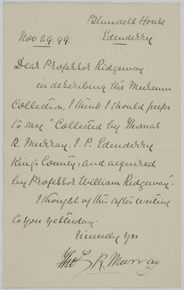 Blundell House
Nov 29. 99. Edenderry
Dear Professor Ridgeway
in describing the Museum
Collection, I think I should prefer
to say "Collected by Thomas
R. Murray. J. P. Edenderry
King's County, and acquired
by Professor William Ridgeway".
I thought of this after writing
to you yesterday.
Sincerely Yrs
Thos R. Murray